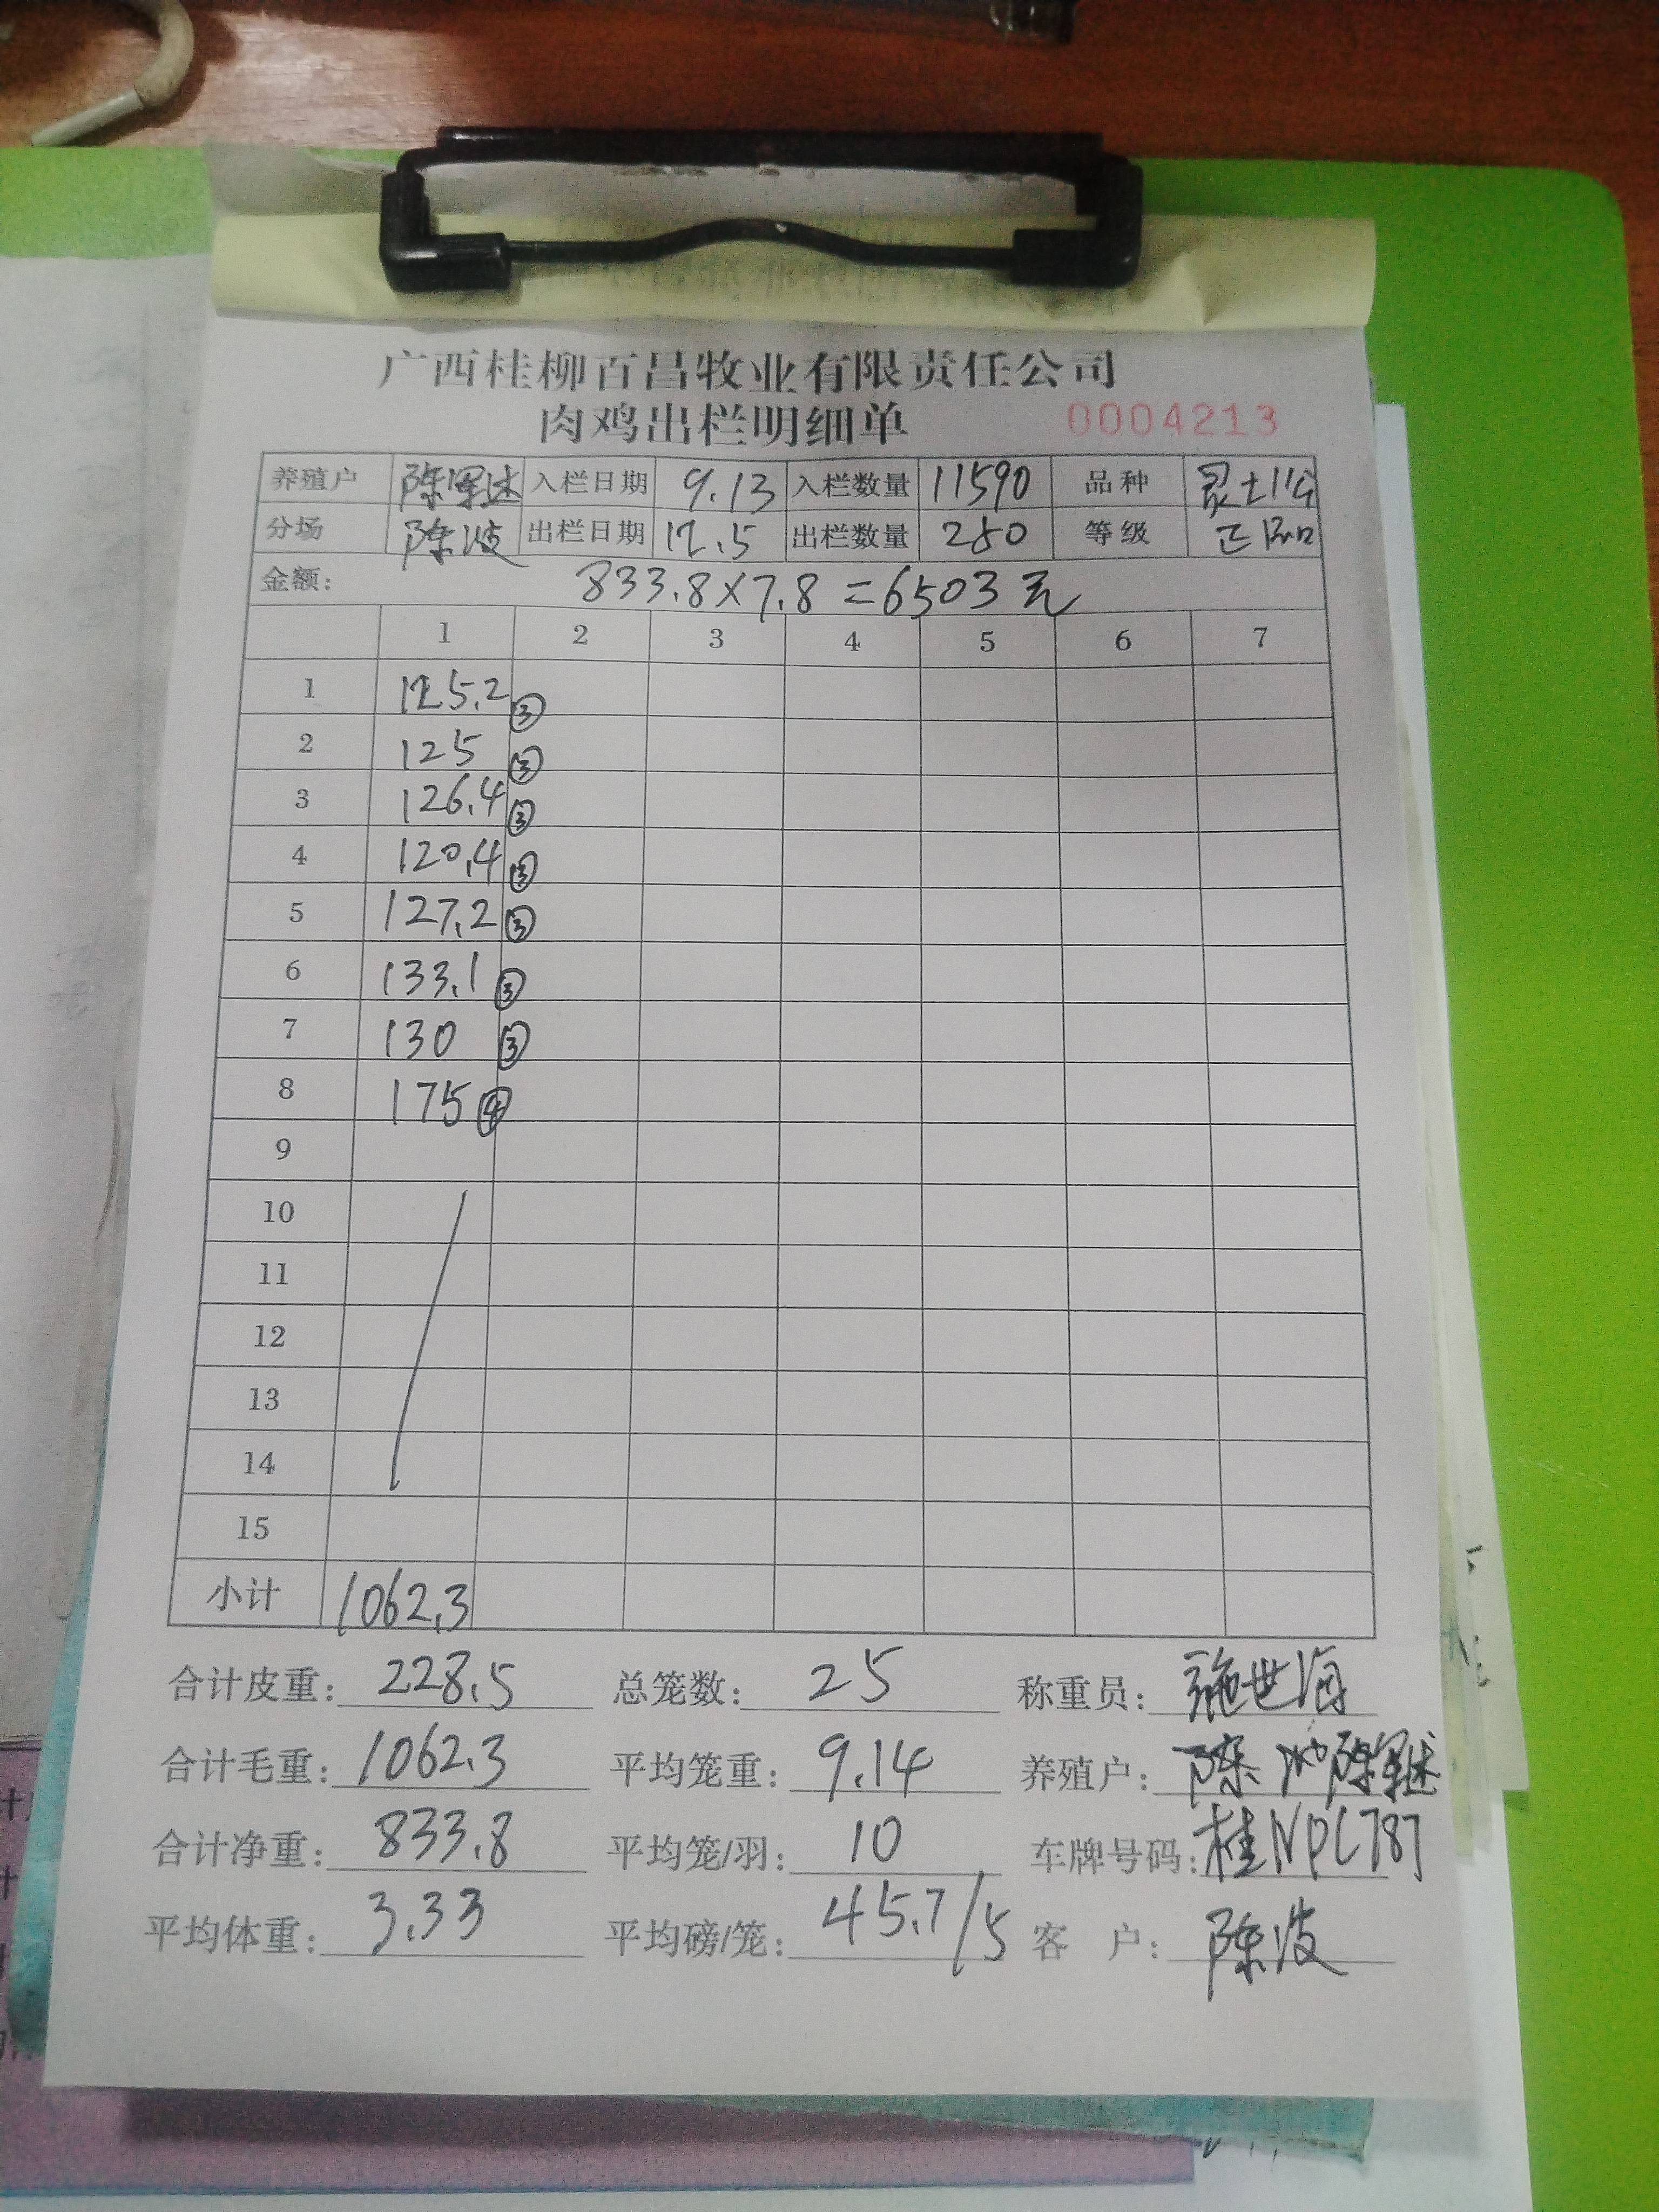 广西桂柳百昌牧业有限责任公司
肉鸡出栏明细单 0004213
养殖户 陈军述 入栏日期 9.13 入栏数量 11590 品种 灵土11公
分场 陈波 出栏日期 12.5 出栏数量 250 等级 正品
金额: 833.8×7.8=6503元
1 2 3 4 5 6 7
1 125.2 ③
2 125 ③
3 126.4 ③
4 120.4 ③
5 127.2 ③
6 133.1 ③
7 130 ③
8 175 ④
9
10
11
12
13
14
15
小计 1062.3
合计皮重: 228.5 总笼数: 25 称重员: 施世海
合计毛重: 1062.3 平均笼重: 9.14 养殖户: 陈军述
合计净重: 833.8 平均笼/羽: 10 车牌号码: 桂NPC787
平均体重: 3.33 平均磅/笼: 45.7/5 客 户: 陈波